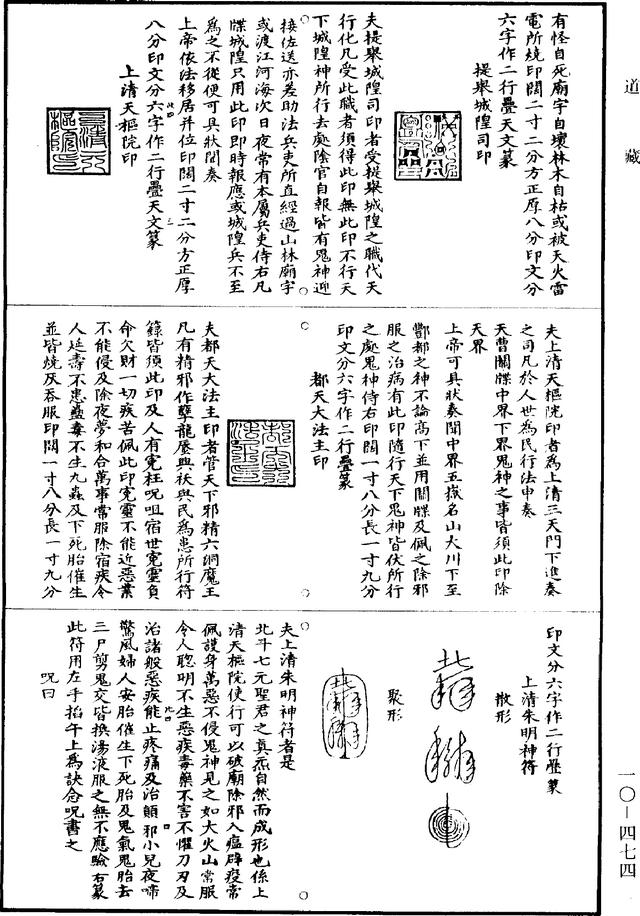 道藏
有怪自死廟宇自壞林木自枯或被天火雷
電所燒印闊二寸二分方正厚八分印文分
六字作二行疊天文篆
提舉城隍司印
夫提舉城隍司印者受提舉城隍之職代天
行化凡受此職者須得此印無此印不行天
下城隍神所行去處陰官自報皆有鬼神迎
接佐送亦差助法兵吏所直經過山林廟宇
或渡江河海次日夜常有本屬兵吏侍右凡
牒城隍只用此印即時報應或城隍兵不至
爲之不從便可具狀聞奏
上帝依法移居并位印闊二寸二分方正厚
八分印文分六字作二行疊天文篆
上清天樞院印
夫上清天樞院印者爲上清三天門下進奏
之司凡於人世爲民行法申奏
天曹關牒中界下界鬼神之事皆須此印除
天界
上帝可具狀奏聞中界五嶽名山大川下至
酆都之神不論高下並用關牒及佩之除邪
服之治病有此印隨行天下鬼神皆伏所行
之處鬼神侍右印闊一寸八分長一寸九分
印文分六字作二行疊篆
都天大法主印
夫都天大法主印者管天下邪精六洞魔王
凡有精邪作孽龍蜃興祅與民爲患所行符
籙皆須此印及人有冤枉呪咀宿世冤靈負
命欠財一切疾苦佩此印冤靈不能近惡業
不能侵及除夜夢和合萬事常服除宿疾令
人延壽不患蠱毒不生九蟲及下死胎催生
並皆燒灰吞服印闊一寸八分長一寸九分
印文分六字作二行疊篆
上清朱明神符
散形
聚形
夫上清朱明神符者是
北斗七元聖君之真炁自然而成形也係上
清天樞院使行可以破廟除邪入瘟辟疫常
佩護身萬惡不侵鬼神見之如大火山常服
令人聰明不生惡疾毒藥不害不懼刀刃及
治諸般惡疾能止疼痛及治顛邪小兒夜啼
驚風婦人安胎催生下死胎及鬼氣鬼胎去
三尸剪鬼交皆換湯液服之無不應驗右篆
此符用左手掐午上爲訣念呪書之
呪曰
一〇—四七四